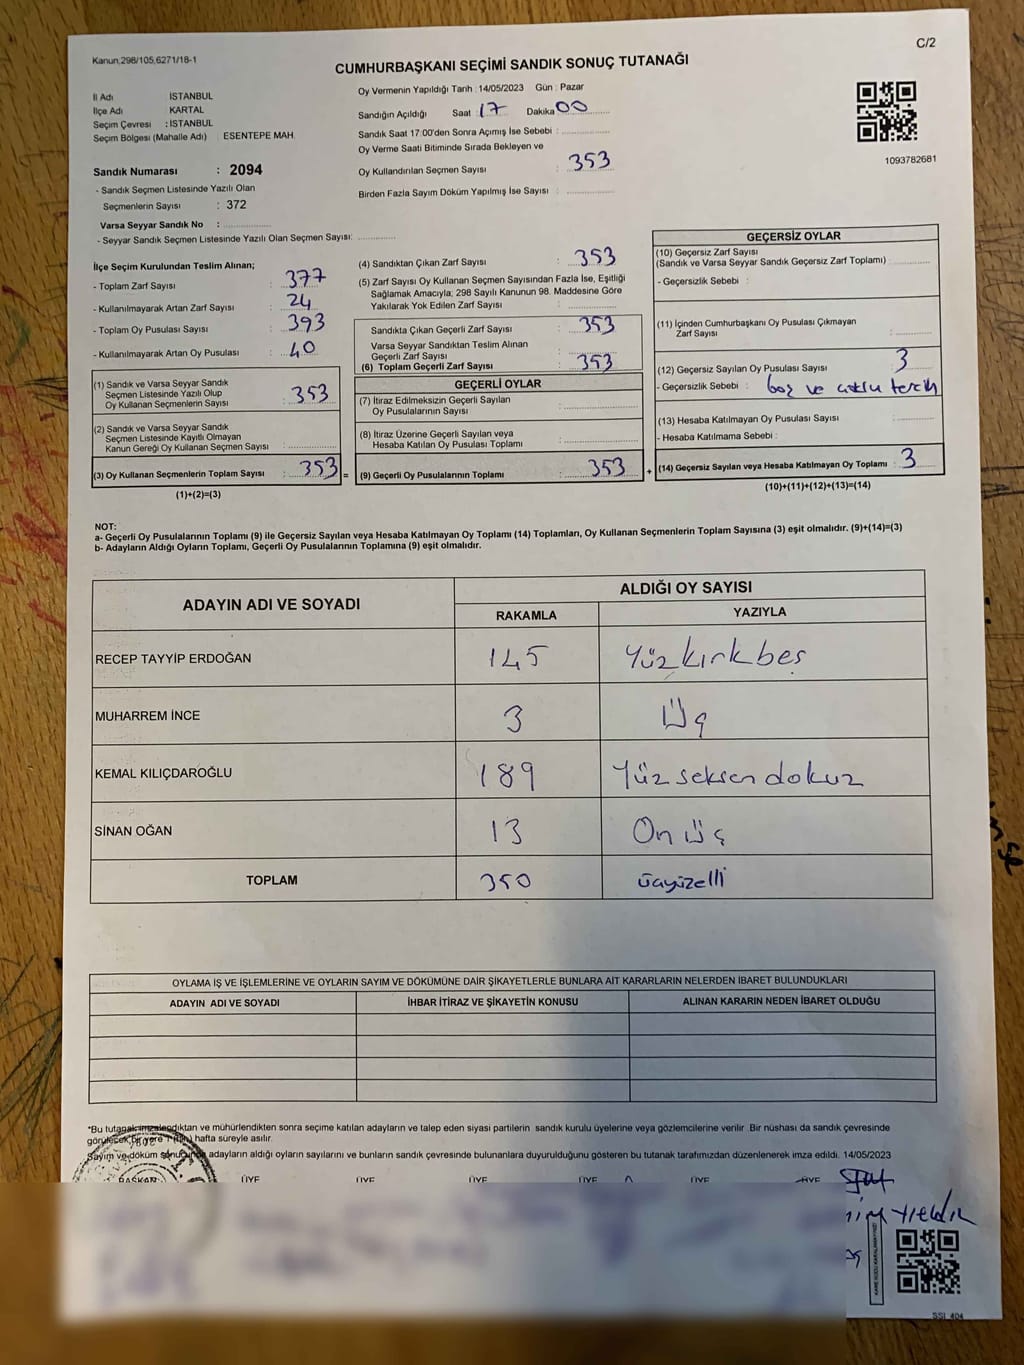 C/2
Kanun,298/105,6271/18-1
CUMHURBAŞKANI SEÇİMİ SANDIK SONUÇ TUTANAĞI
İl Adı İSTANBUL
İlçe Adı KARTAL
Seçim Çevresi : İSTANBUL
Seçim Bölgesi (Mahalle Adı) : ESENTEPE MAH.
Sandık Numarası : 2094
- Sandık Seçmen Listesinde Yazılı Olan
Seçmenlerin Sayısı : 372
Varsa Seyyar Sandık No :
- Seyyar Sandık Seçmen Listesinde Yazılı Olan Seçmen Sayısı:
Oy Vermenin Yapıldığı Tarih : 14/05/2023 Gün : Pazar
Sandığın Açıldığı Saat 17 Dakika 00
Sandık Saat 17:00'den Sonra Açımış İse Sebebi :
Oy Verme Saati Bitiminde Sırada Bekleyen ve
Oy Kullandırılan Seçmen Sayısı : 353
Birden Fazla Sayım Döküm Yapılmış İse Sayısı :
1093782681
İlçe Seçim Kurulundan Teslim Alınan;
- Toplam Zarf Sayısı : 377
- Kullanılmayarak Artan Zarf Sayısı : 24
- Toplam Oy Pusulası Sayısı : 393
- Kullanılmayarak Artan Oy Pusulası : 40
(1) Sandık ve Varsa Seyyar Sandık
Seçmen Listesinde Yazılı Olup
Oy Kullanan Seçmenlerin Sayısı : 353
(2) Sandık ve Varsa Seyyar Sandık
Seçmen Listesinde Kayıtlı Olmayan
Kanun Gereği Oy Kullanan Seçmen Sayısı :
(3) Oy Kullanan Seçmenlerin Toplam Sayısı : 353 =
(1)+(2)=(3)
(4) Sandıktan Çıkan Zarf Sayısı : 353
(5) Zarf Sayısı Oy Kullanan Seçmen Sayısından Fazla İse, Eşitliği
Sağlamak Amacıyla; 298 Sayılı Kanunun 98. Maddesine Göre
Yakılarak Yok Edilen Zarf Sayısı :
Sandıkta Çıkan Geçerli Zarf Sayısı : 353
Varsa Seyyar Sandıktan Teslim Alınan
Geçerli Zarf Sayısı :
(6) Toplam Geçerli Zarf Sayısı : 353
GEÇERLİ OYLAR
(7) İtiraz Edilmeksizin Geçerli Sayılan
Oy Pusulalarının Sayısı :
(8) İtiraz Üzerine Geçerli Sayılan veya
Hesaba Katılan Oy Pusulası Toplamı :
(9) Geçerli Oy Pusulalarının Toplamı : 353 +
GEÇERSİZ OYLAR
(10) Geçersiz Zarf Sayısı
(Sandık ve Varsa Seyyar Sandık Geçersiz Zarf Toplamı) :
- Geçersizlik Sebebi :
(11) İçinden Cumhurbaşkanı Oy Pusulası Çıkmayan
Zarf Sayısı :
(12) Geçersiz Sayılan Oy Pusulası Sayısı : 3
- Geçersizlik Sebebi : boş ve çoklu tercih
(13) Hesaba Katılmayan Oy Pusulası Sayısı :
- Hesaba Katılmama Sebebi :
(14) Geçersiz Sayılan veya Hesaba Katılmayan Oy Toplamı : 3
(10)+(11)+(12)+(13)=(14)
NOT:
a- Geçerli Oy Pusulalarının Toplamı (9) ile Geçersiz Sayılan veya Hesaba Katılmayan Oy Toplamı (14) Toplamları, Oy Kullanan Seçmenlerin Toplam Sayısına (3) eşit olmalıdır. (9)+(14)=(3)
b- Adayların Aldığı Oyların Toplamı, Geçerli Oy Pusulalarının Toplamına (9) eşit olmalıdır.
ADAYIN ADI VE SOYADI ALDIĞI OY SAYISI
RAKAMLA YAZIYLA
RECEP TAYYİP ERDOĞAN 145 Yüzkırkbeş
MUHARREM İNCE 3 Üç
KEMAL KILIÇDAROĞLU 189 Yüz seksen dokuz
SİNAN OĞAN 13 On üç
TOPLAM 350 üçyüzelli
OYLAMA İŞ VE İŞLEMLERİNE VE OYLARIN SAYIM VE DÖKÜMÜNE DAİR ŞİKAYETLERLE BUNLARA AİT KARARLARIN NELERDEN İBARET BULUNDUKLARI
ADAYIN ADI VE SOYADI İHBAR İTİRAZ VE ŞİKAYETİN KONUSU ALINAN KARARIN NEDEN İBARET OLDUĞU
*Bu tutanak imzalandıktan ve mühürlendikten sonra seçime katılan adayların ve talep eden siyasi partilerin sandık kurulu üyelerine veya gözlemcilerine verilir .Bir nüshası da sandık çevresinde
görülecek bir yere 1 (bir) hafta süreyle asılır.
Sayım ve döküm sonucunda adayların aldığı oyların sayılarını ve bunların sandık çevresinde bulunanlara duyurulduğunu gösteren bu tutanak tarafımızdan düzenlenerek imza edildi. 14/05/2023
BAŞKAN ÜYE ÜYE ÜYE ÜYE ÜYE ÜYE
SSI_404